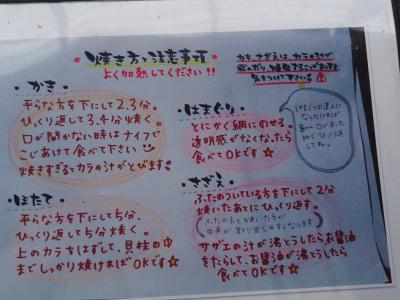 焼き方と注意事項
よく加熱してください!!
かき、さざえは、カラやフタが
気をつけて下さい!
・かき・
平らな方を下にして2.3分。
ひっくり返して3.4分焼く。
口が開かない時はナイフで
こじあけて食べて下さい
焼きすぎるとカラや汁がとびます
・はまぐり・
とにかく網にのせる。
透明感がなくなったら
食べてOKです☆
・ほたて・
平らな方を下にして5分、
ひっくり返して5分焼く。
上のカラをはずして、貝柱の中
までしっかり焼ければOKです☆
・さざえ・
ふたのついている方を下にして2分
焼いたあとにひっくり返す。
サザエの汁が沸とうしたらお醤油
をたらして、お醤油が沸とうしたら
食べてOKです☆